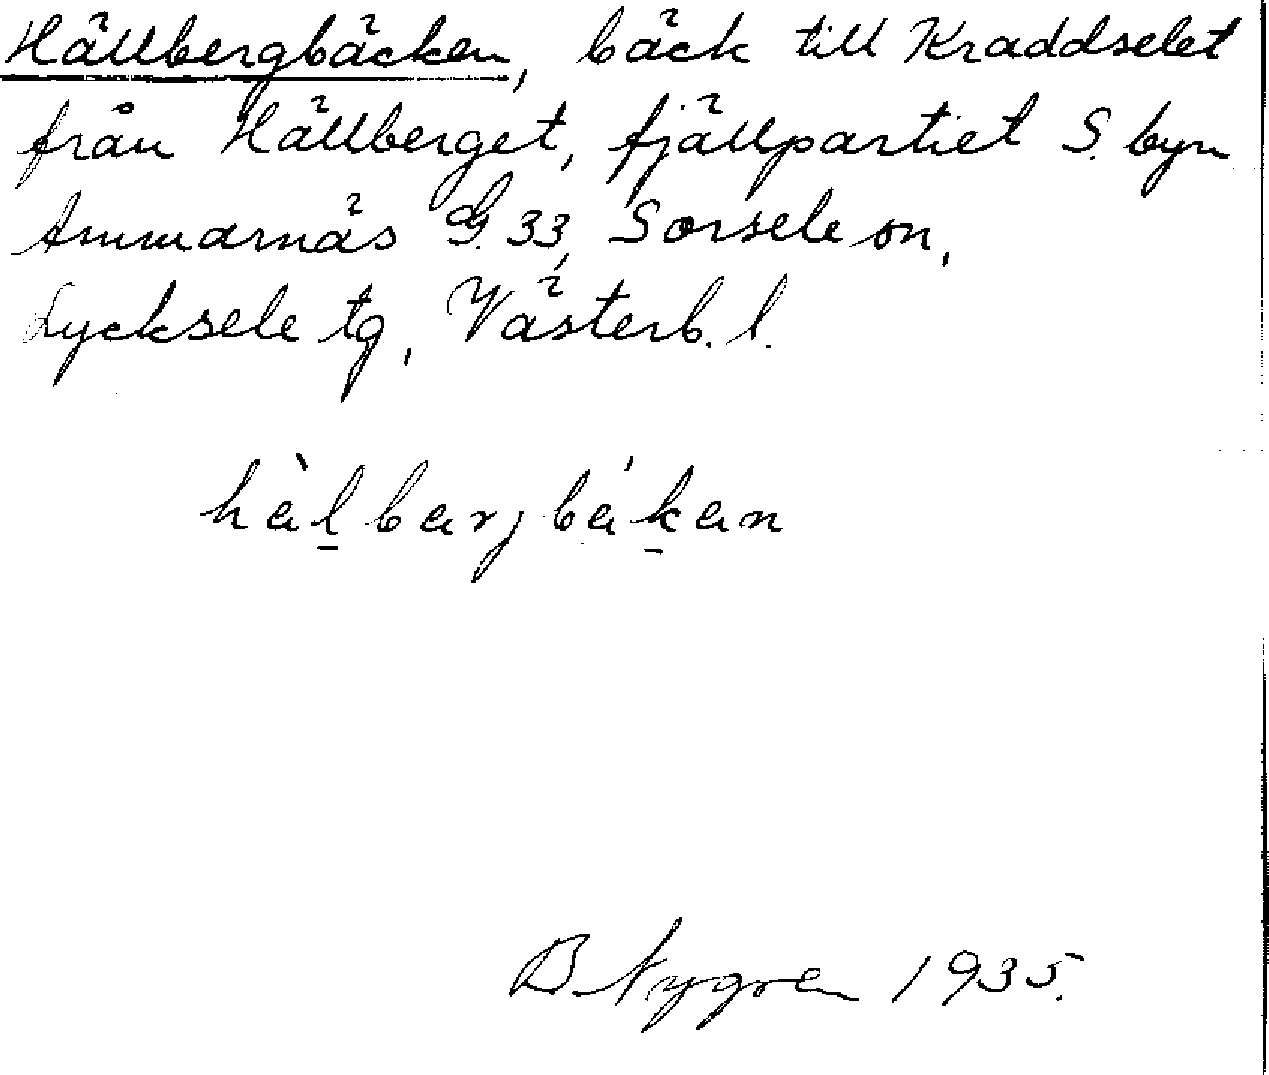 Hällbergbäcken, bäck till Kraddselet
från Hällberget, fjällpartiet S. byn
Ammarnäs G. 33, Sorsele sn,
Lycksele tg, Västerb. l.
hàl̠barjbák̠an
B Nygren 1935.